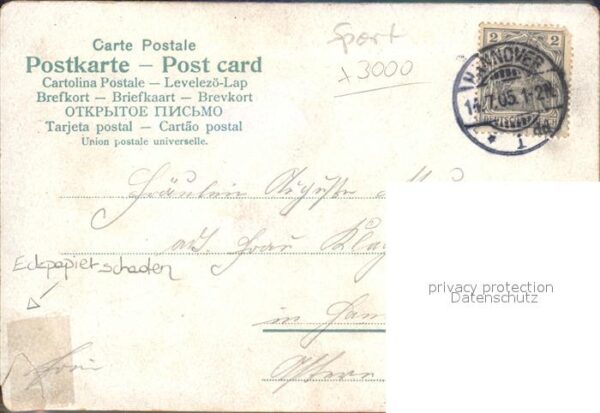 Carte Postale
Postkarte – Post card
Cartolina Postale – Levelező-Lap
Brefkort – Briefkaart – Brevkort
ОТКРЫТОЕ ПИСЬМО
Tarjeta postal – Cartão postal
Union postale universelle.
Sport
3000
2 2
HANNOVER
7.05. 1-2N.
* 1
Fräulein Auguste
Frau
in
Eckpapierschaden
privacy protection
Datenschutz